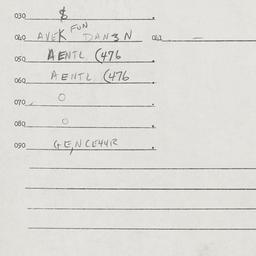 030 $
040 AVEK FUN DAN3N 041 —
050 AENTL (476
060 AENTL (476
070 O
080 O
090